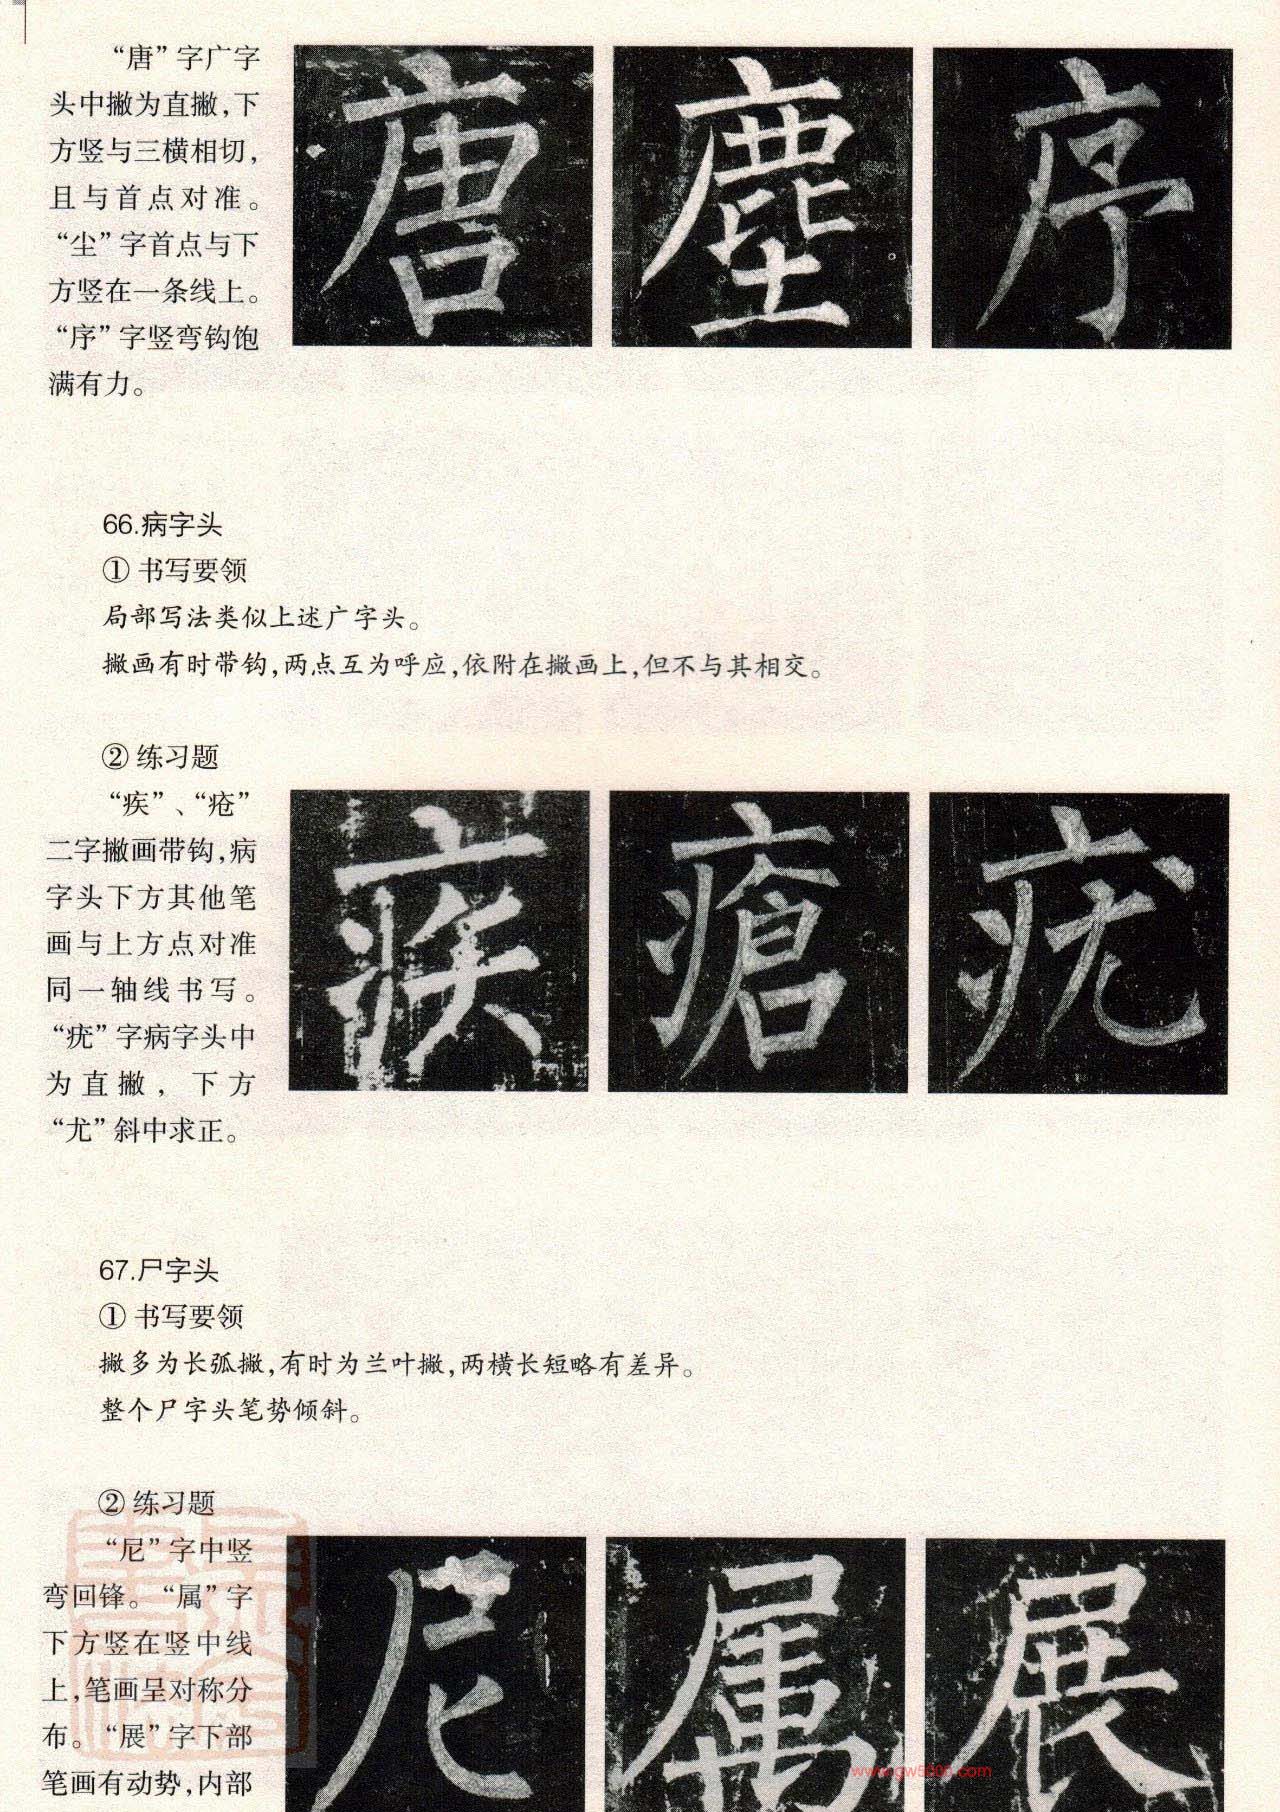 “唐”字广字
头中撇为直撇，下
方竖与三横相切，
且与首点对准。
“尘”字首点与下
方竖在一条线上。
“序”字竖弯钩饱
满有力。
唐 塵 序
66.病字头
① 书写要领
局部写法类似上述广字头。
撇画有时带钩，两点互为呼应，依附在撇画上，但不与其相交。
② 练习题
“疾”、“疮”
二字撇画带钩，病
字头下方其他笔
画与上方点对准
同一轴线书写。
“疣”字病字头中
为直撇，下方
“尤”斜中求正。
疾 瘡 疣
67.尸字头
① 书写要领
撇多为长弧撇，有时为兰叶撇，两横长短略有差异。
整个尸字头笔势倾斜。
② 练习题
“尼”字中竖
弯回锋。“属”字
下方竖在竖中线
上，笔画呈对称分
布。“展”字下部
笔画有动势，内部
尼 属 展
www.gw5000.com